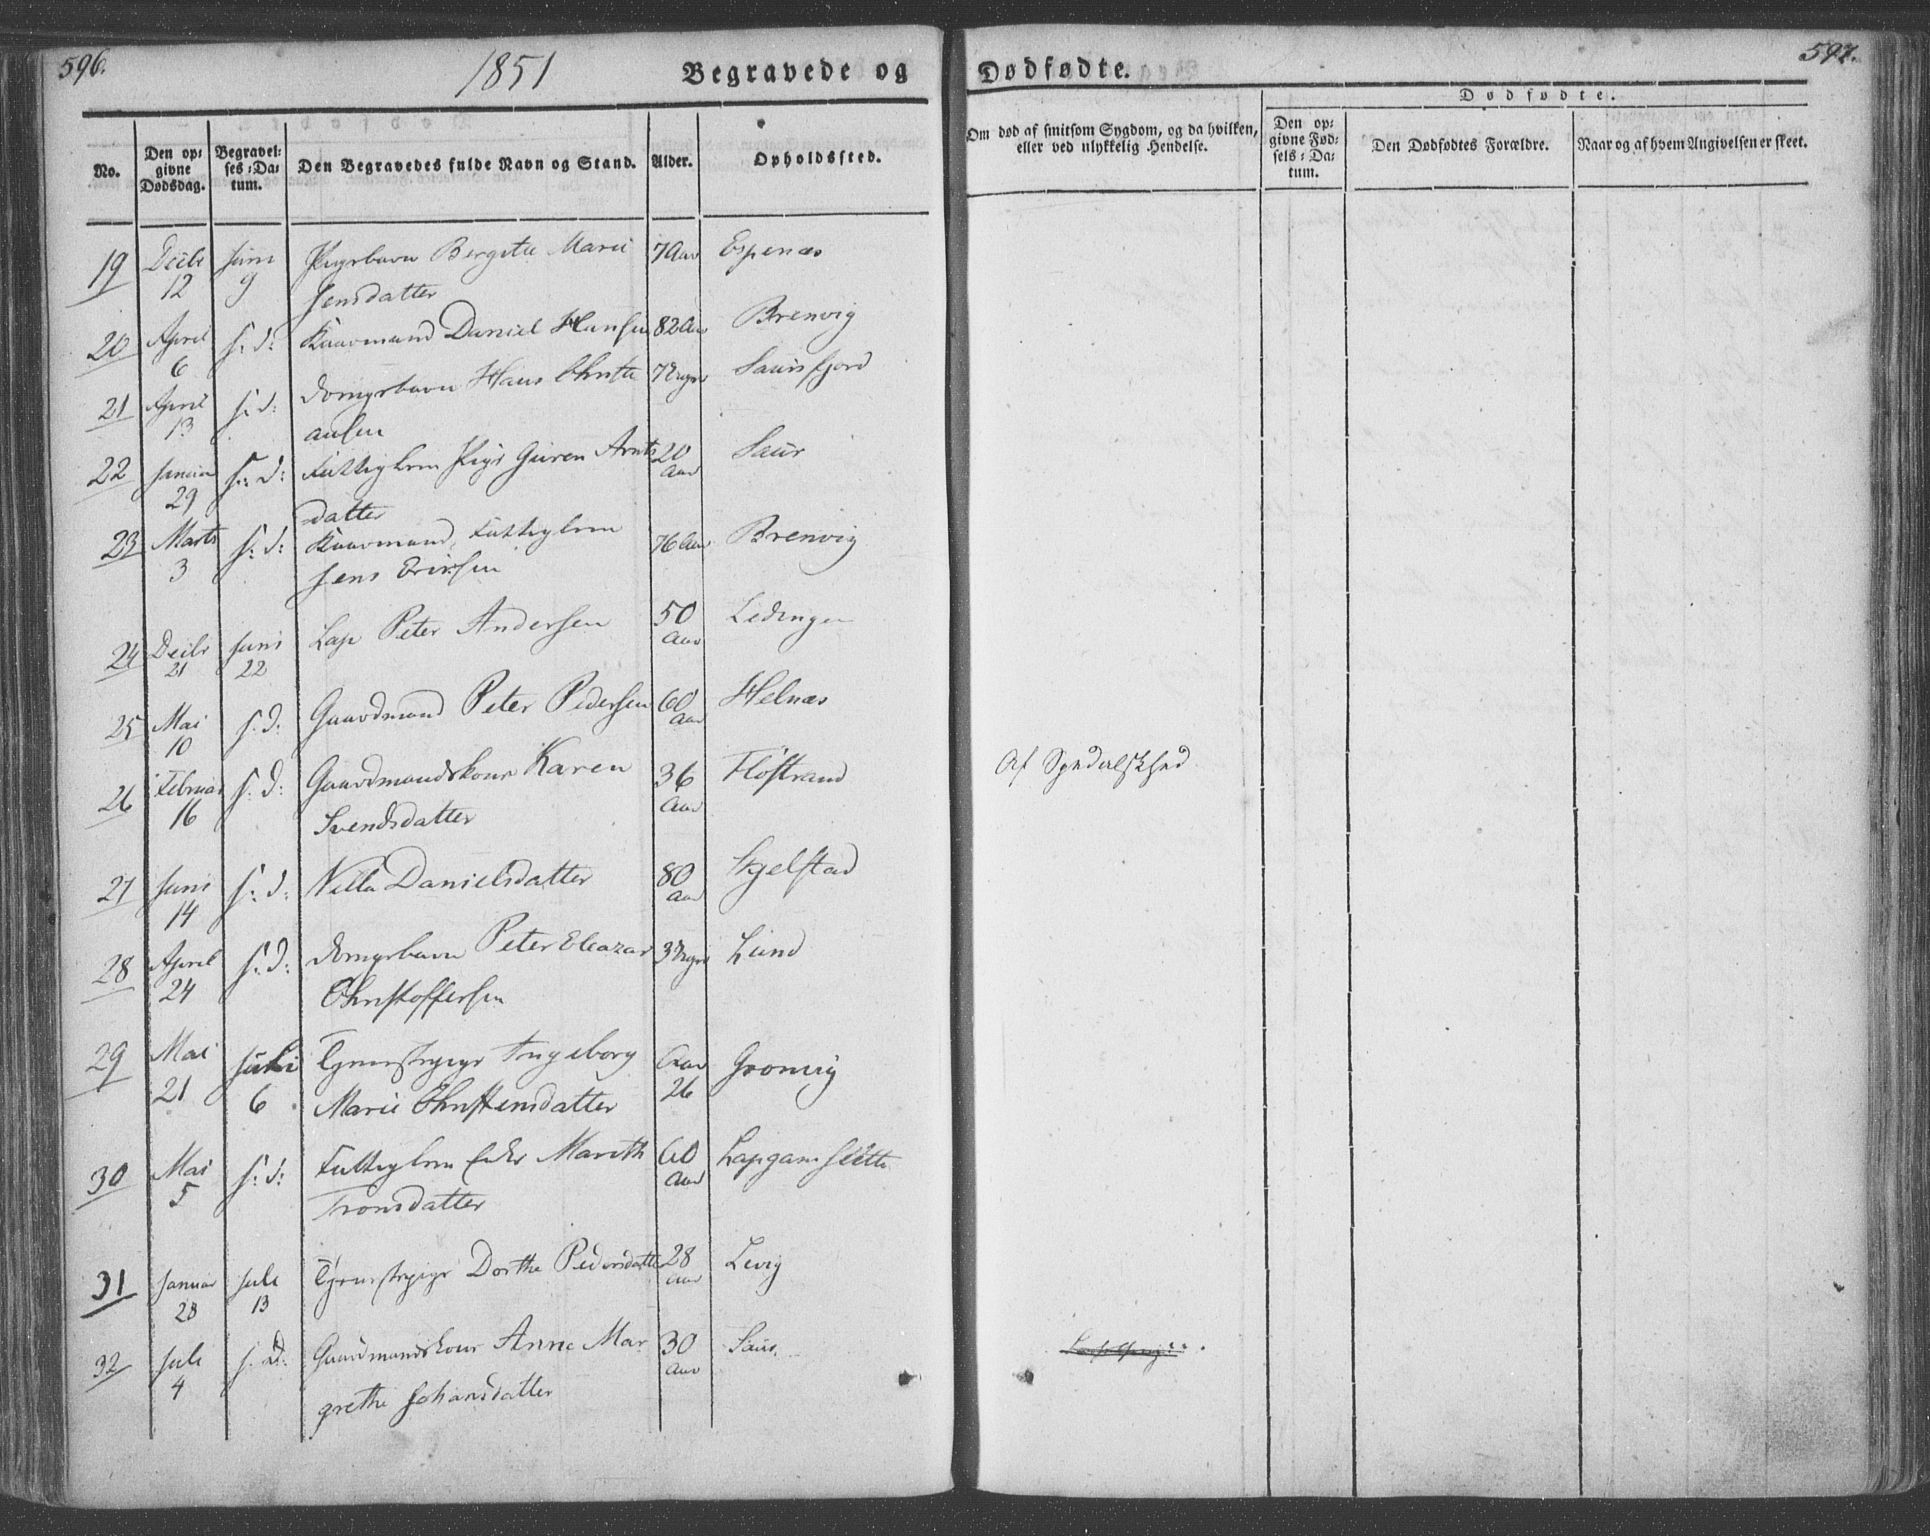 596.
1851
Begravede og
Dødfødte.
597.
No.
Den op-
givne
Dødsdag.
Begravel-
ses-Da-
tum.
Den Begravedes fulde Navn og Stand.
Alder.
Opholdssted.
Om død af smitsom Sygdom, og da hvilken,
eller ved ulykkelig Hendelse.
Dødfødte.
Den op-
givne Fød-
sels-Da-
tum.
Den Dødfødtes Forældre.
Naar og af hvem Angivelsen er skeet.
19 Decbr 12 Juni 9 Pigebarn Bergitte Marie 7 Aar Espenæs
Jensdatter
20 April 6 s: d: Kaarmand Daniel Hansen 82 Aar Brenvig
21 April 13 s: d: Drengebarn Hans Christi 7 Uger Saurfjord
ansen
22 Januar 29 s: d: Fattiglem Pige Guren Arnts 20 Aar Saur
datter
23 Marts 3 s: d: Kaarmand, Fattiglem 76 Aar Brenvig
Jens Eriksen
24 Decbr 21 Juni 22 Lap Peter Andersen 50 Aar Ledingen
25 Mai 10 s: d: Gaardmand Peter Pedersen 60 Aar Helnæs
26 Februar 16 s: d: Gaardmandskone Karen 36 Aar Flostrand Af Spedalskhed
Svendsdatter
27 Juni 14 s: d: Nilla Danielsdatter 80 Aar Skjelstad
28 April 24 s: d: Drengebarn Peter Eleazar 3 Uger Lund
Christoffersen
29 Mai 21 Juli 6 Tjenestepige Ingeborg Aar 26 Gronvig
Marie Christensdatter
30 Mai 5 s: d: Fattiglem Enke Mareth 60 Aar Lapgamslette
Tronsdatter
31 Januar 28 Juli 13 Tjenestepige Dorthe Pedersdatter 28 Aar Levig
32 Juli 4 s: d: Gaardmandskone Anne Mar 30 Aar Saur
grethe Johansdatter